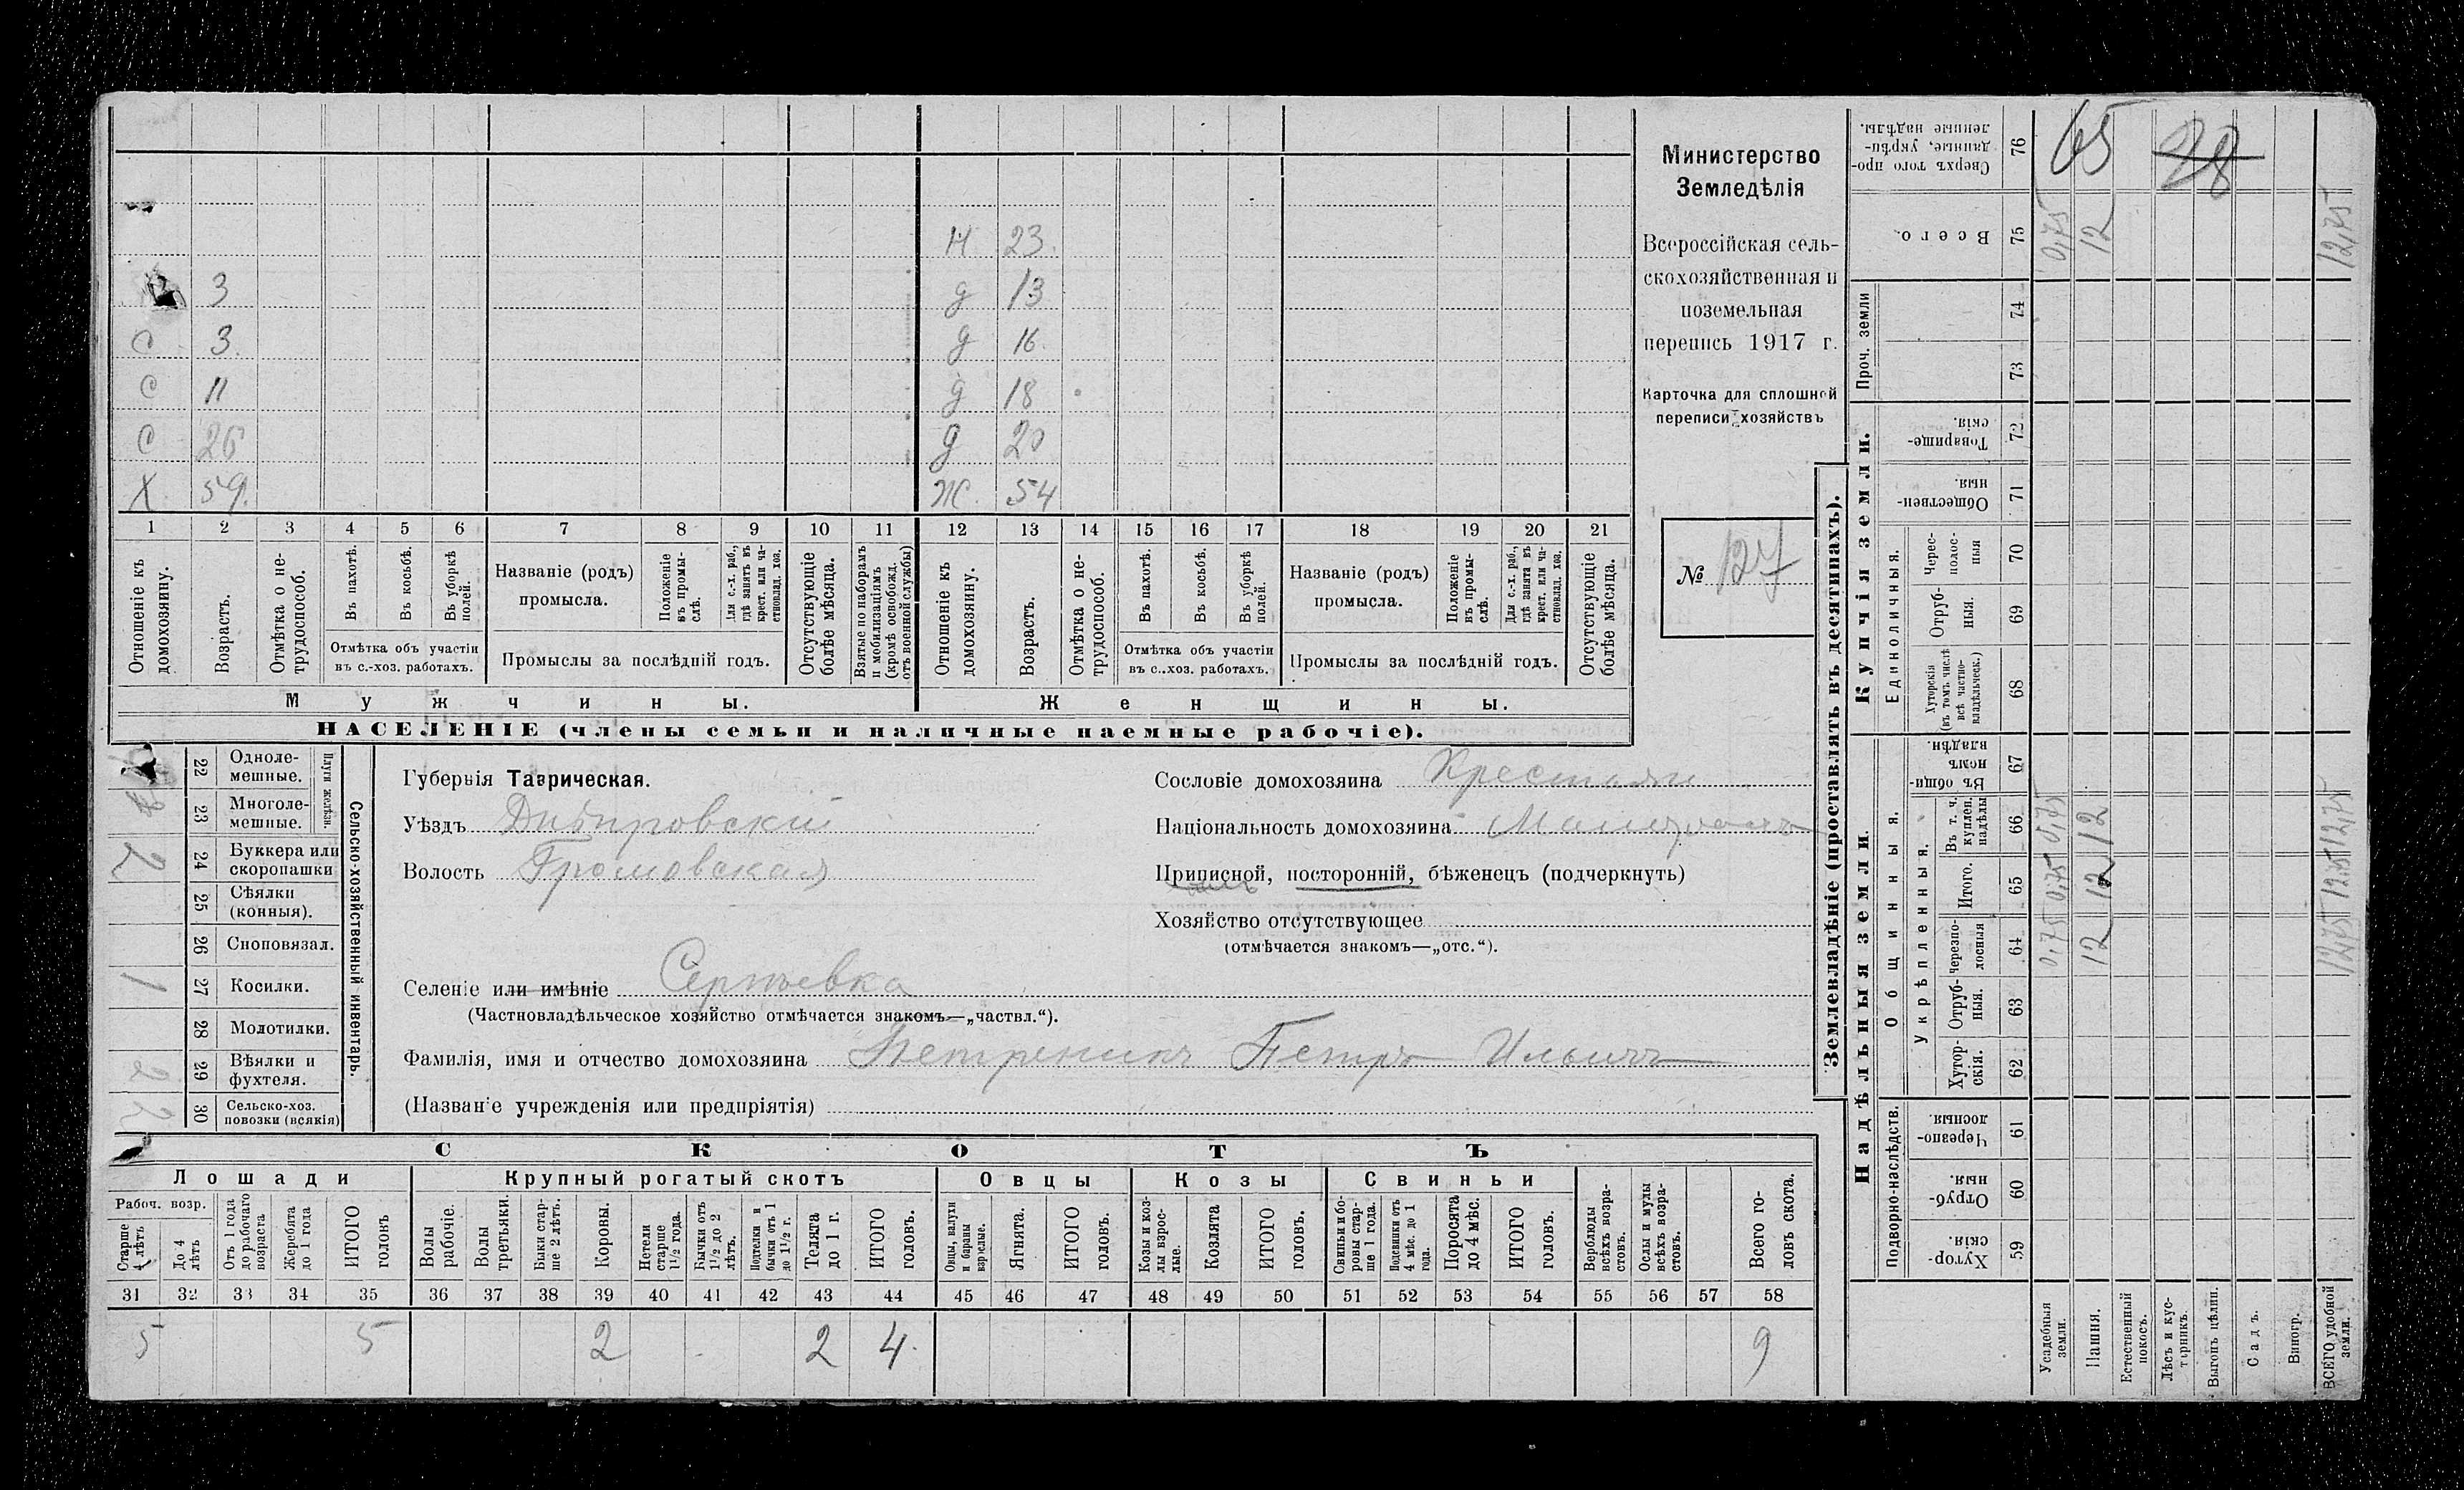 Н 23.
3
д 13
С 3.
д 16.
С 11
д 18
С 26
д 20
Х 59.
Ж. 54
1 2 3 4 5 6 7 8 9 10 11 12 13 14 15 16 17 18 19 20 21
Отношеніе къ домохозяину.
Возрастъ.
Отмѣтка о не-трудоспособ.
Въ пахотѣ.
Въ косьбѣ.
Въ уборкѣ полей.
Отмѣтка объ участіи
въ с.-хоз. работахъ.
Названіе (родъ)
промысла.
Положеніе въ промы-слѣ.
Для с.-х. раб., гдѣ занятъ въ крест. или ча-стновлад. хоз.
Промыслы за послѣдній годъ.
Отсутствующіе болѣе мѣсяца.
Взятые по наборамъ и мобилизаціямъ (кромѣ освобожд. отъ военной службы)
Отношеніе къ домохозяину.
Возрастъ.
Отмѣтка о не-трудоспособ.
Въ пахотѣ.
Въ косьбѣ.
Въ уборкѣ полей.
Отмѣтка объ участіи
въ с..хоз. работахъ.
Названіе (родъ)
промысла.
Положеніе въ промы-слѣ.
Для с.-х. раб., гдѣ занята въ крест. или ча-стновлад. хоз.
Промыслы за послѣдній годъ.
Отсутствующіе болѣе мѣсяца.
Мужчины.
Женщины.
НАСЕЛЕНІЕ (члены семьи и наличные наемные рабочіе).
Министерство
Земледѣлія
Всероссійская сель-
скохозяйственная и
поземельная
перепись 1917 г.
Карточка для сплошной
переписи хозяйствъ
№ 127
Сельско-хозяйственный инвентарь.
Плуги желѣзн.
22 Одноле-
мешные.
23 Многоле-
мешные.
2 24 Буккера или
скоропашки
25 Сѣялки
(конныя).
26 Сноповязал.
1 27 Косилки.
28 Молотилки.
2 29 Вѣялки и
фухтеля.
2 30 Сельско-хоз.
повозки (всякія)
Губернія Таврическая.
Уѣздъ Днѣпровскій
Волость Громовская
Селеніе или имѣніе Сергѣевка
(Частновладѣльческое хозяйство отмѣчается знакомъ—„частвл.“).
Фамилія, имя и отчество домохозяина Петръ Ильичъ
(Названіе учрежденія или предпріятія)
Сословіе домохозяина Крестьян
Національность домохозяина
Приписной, посторонній, бѣженецъ (подчеркнуть)
Хозяйство отсутствующее
(отмѣчается знакомъ—„отс.“).
СКОТЪ
Лошади
Крупный рогатый скотъ
Овцы
Козы
Свиньи
Рабоч. возр.
Старше 4 лѣтъ
До 4 лѣтъ
Отъ 1 года до рабочаго возраста
Жеребята до 1 года
ИТОГО головъ
Волы рабочіе.
Волы третьяки.
Быки стар-ше 2 лѣтъ.
Коровы.
Нетели старше 1½ года.
Бычки отъ 1½ до 2 лѣтъ.
Подтелки и бычки отъ 1 до 1½ г.
Телята до 1 г.
ИТОГО головъ.
Овцы, валухи и бараны взрослые.
Ягнята.
ИТОГО головъ.
Козы и коз-лы взрос-лые.
Козлята
ИТОГО головъ.
Свиньи и бо-ровы стар-ше 1 года.
Подсвинки отъ 4 мѣс. до 1 года.
Поросята до 4 мѣс.
ИТОГО головъ.
Верблюды всѣхъ возра-стовъ.
Ослы и мулы всѣхъ возра-стовъ.
Всего го-ловъ скота.
31 32 33 34 35 36 37 38 39 40 41 42 43 44 45 46 47 48 49 50 51 52 53 54 55 56 57 58
5 5 2 2 4. 9
Землевладѣніе (проставлять въ десятинахъ).
Купчія земли.
Надѣльныя земли.
Проч. земли
Единоличныя.
Общинныя.
Укрѣпленныя.
Подворно-наслѣдств.
Сверхъ того про-данные, укрѣп-ленные надѣлы. 76 65 28
Всего. 75 0,75 12 12,75
74
73
Товарище-скія. 72
Обществен-ныя. 71
Черес-полос-ныя 70
Отруб-ныя. 69
Хуторскія (въ томъ числѣ всѣ частно-владѣльческ.) 68
Въ общи-номъ владѣн. 67
Въ т. ч. куплен. надѣлы 66 0,75 12 12,75
Итого. 65 0,75 12 12,75
черезпо-лосныя 64 0,75 12 12,75
Отруб-ныя. 63
Хутор-скія. 62
Черезпо-лосныя. 61
Отруб-ныя. 60
Хутор-скія. 59
Усадебныя земли.
Пашня.
Естественный покосъ.
Лѣсъ и кус-тарникъ.
Выгонъ цѣлин.
Садъ.
Виногр.
ВСЕГО удобной земли.